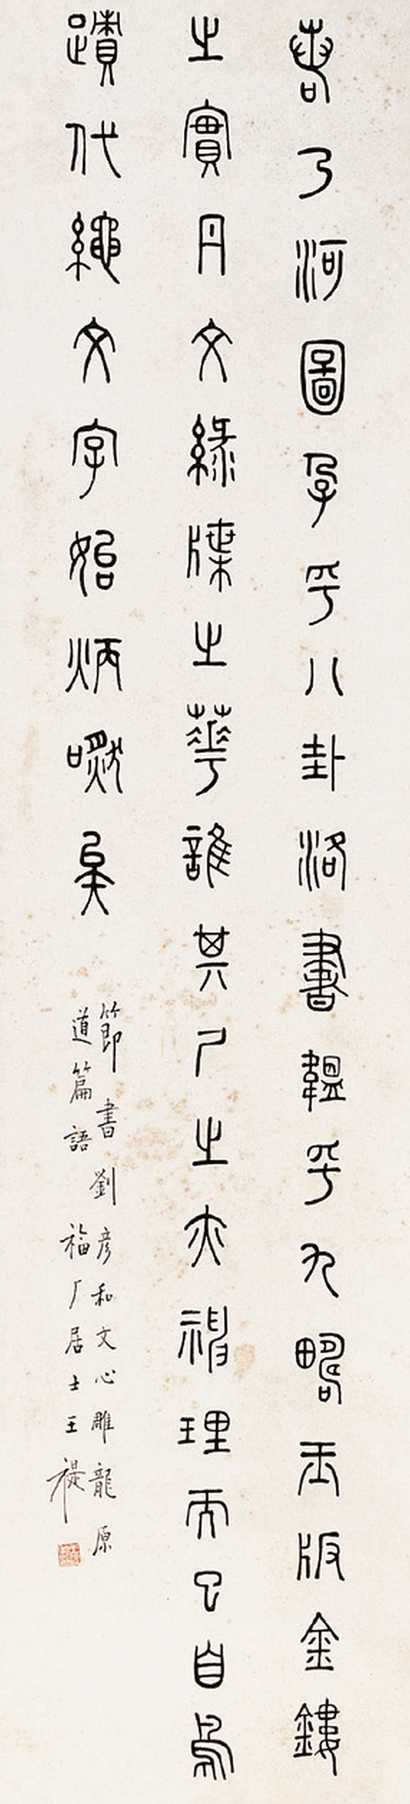 若乃河圖孕乎八卦洛書韞乎九疇玉版金鏤
之實丹文綠牒之華誰其尸之亦神理而已自鳥
蹟代繩文字始炳嘫矣
節書劉彥和文心雕龍原
道篇語 福厂居士王禔